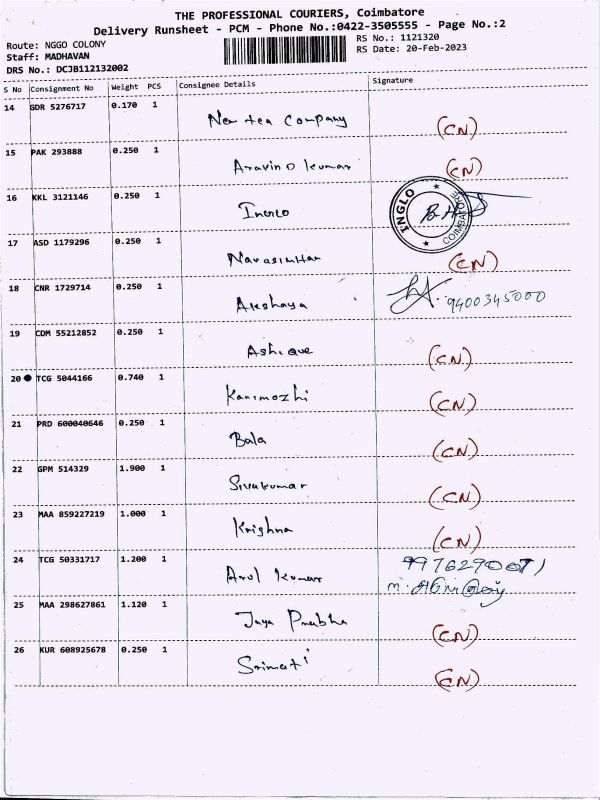 THE PROFESSIONAL COURIERS, Coimbatore
Delivery Runsheet - PCM - Phone No.:0422-3505555 - Page No.:2
Route: NGGO COLONY RS No.: 1121320
Staff: MADHAVAN RS Date: 20-Feb-2023
DRS No.: DCJB112132002
S No Consignment No Weight PCS Consignee Details Signature
14 GDR 5276717 0.170 1 New tea Company (CN)
15 PAK 293888 0.250 1 Aravind kumar (CN)
16 KKL 3121146 0.250 1 INGLO COIMBATORE
17 ASD 1179296 0.250 1 Narasimhan (CN)
18 CNR 1729714 0.250 1 Akshaya 9400345000
19 CDM 55212852 0.250 1 Ashique (CN)
20 TCG 5044166 0.740 1 Kanimozhi (CN)
21 PRD 600040646 0.250 1 Bala (CN)
22 GPM 514329 1.900 1 Sivakumar (CN)
23 MAA 859227219 1.000 1 Krishna (CN)
24 TCG 50331717 1.200 1 Arul Kumar
25 MAA 298627861 1.120 1 Jaya Prabha (CN)
26 KUR 608925678 0.250 1 Srimati (CN)